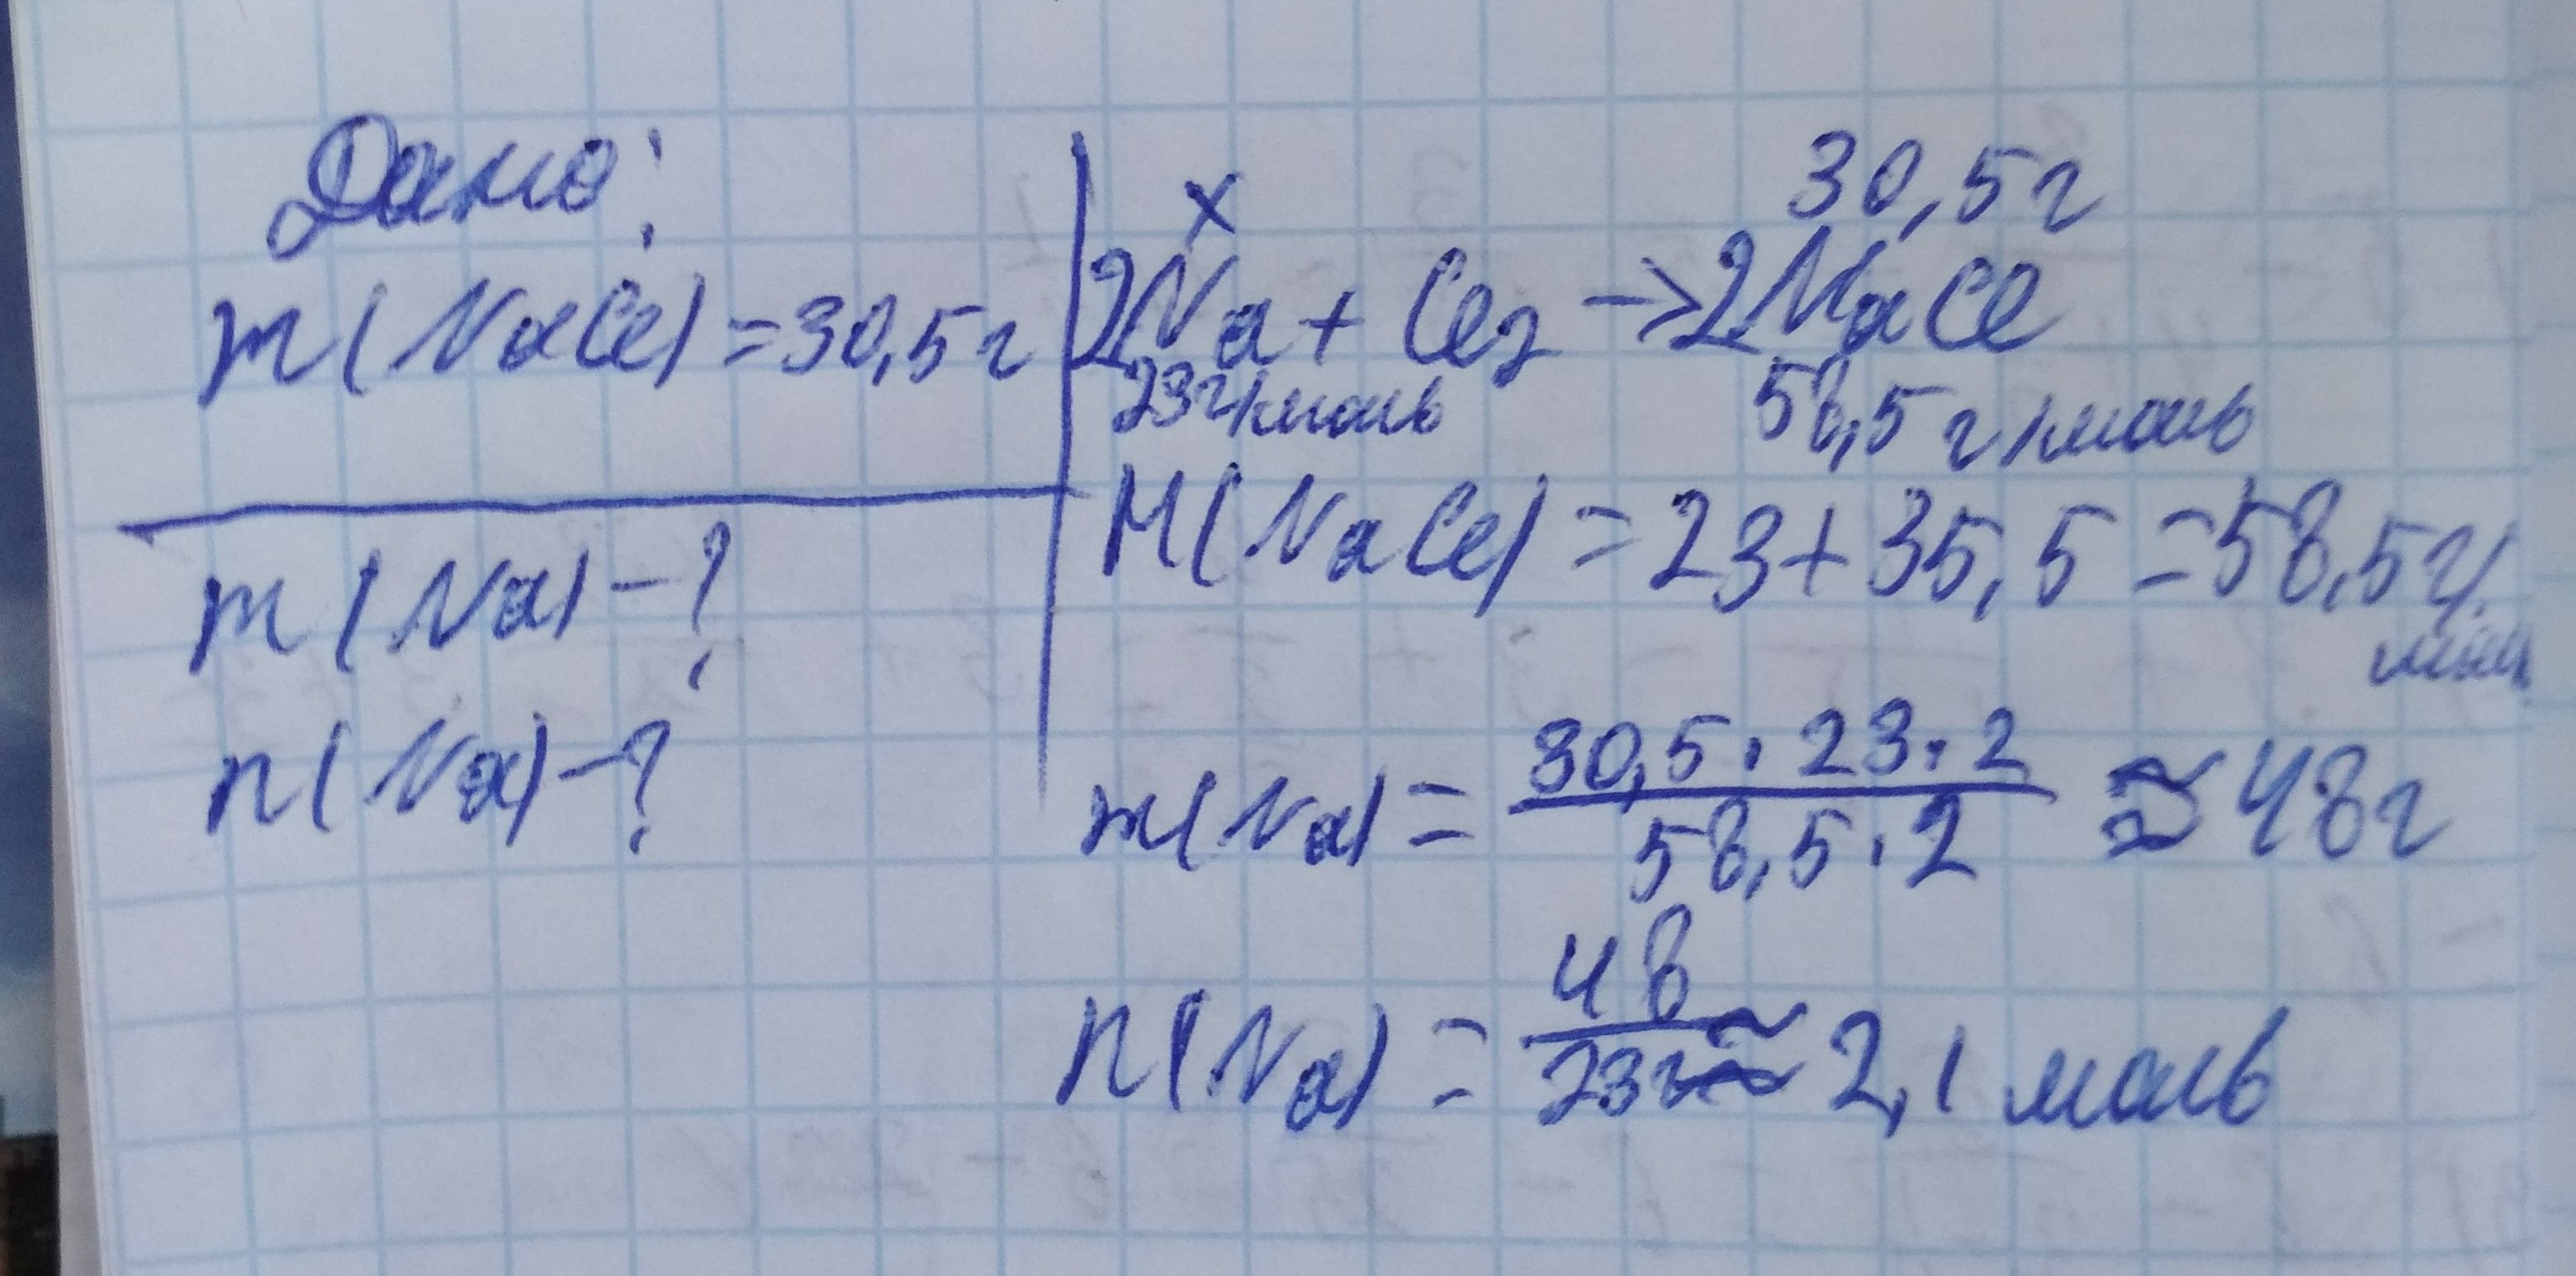 Дано:
m(NaCl)=30,5г
m(Na)-?
n(Na)-?
x 30,5г
2Na + Cl₂ → 2NaCl
23г/моль 58,5г/моль
M(NaCl) = 23+35,5 = 58,5г/
моль
m(Na) = 30,5·23·2 / 58,5·2 ≈ 48г
n(Na) = 48 / 23 ≈ 2,1 моль